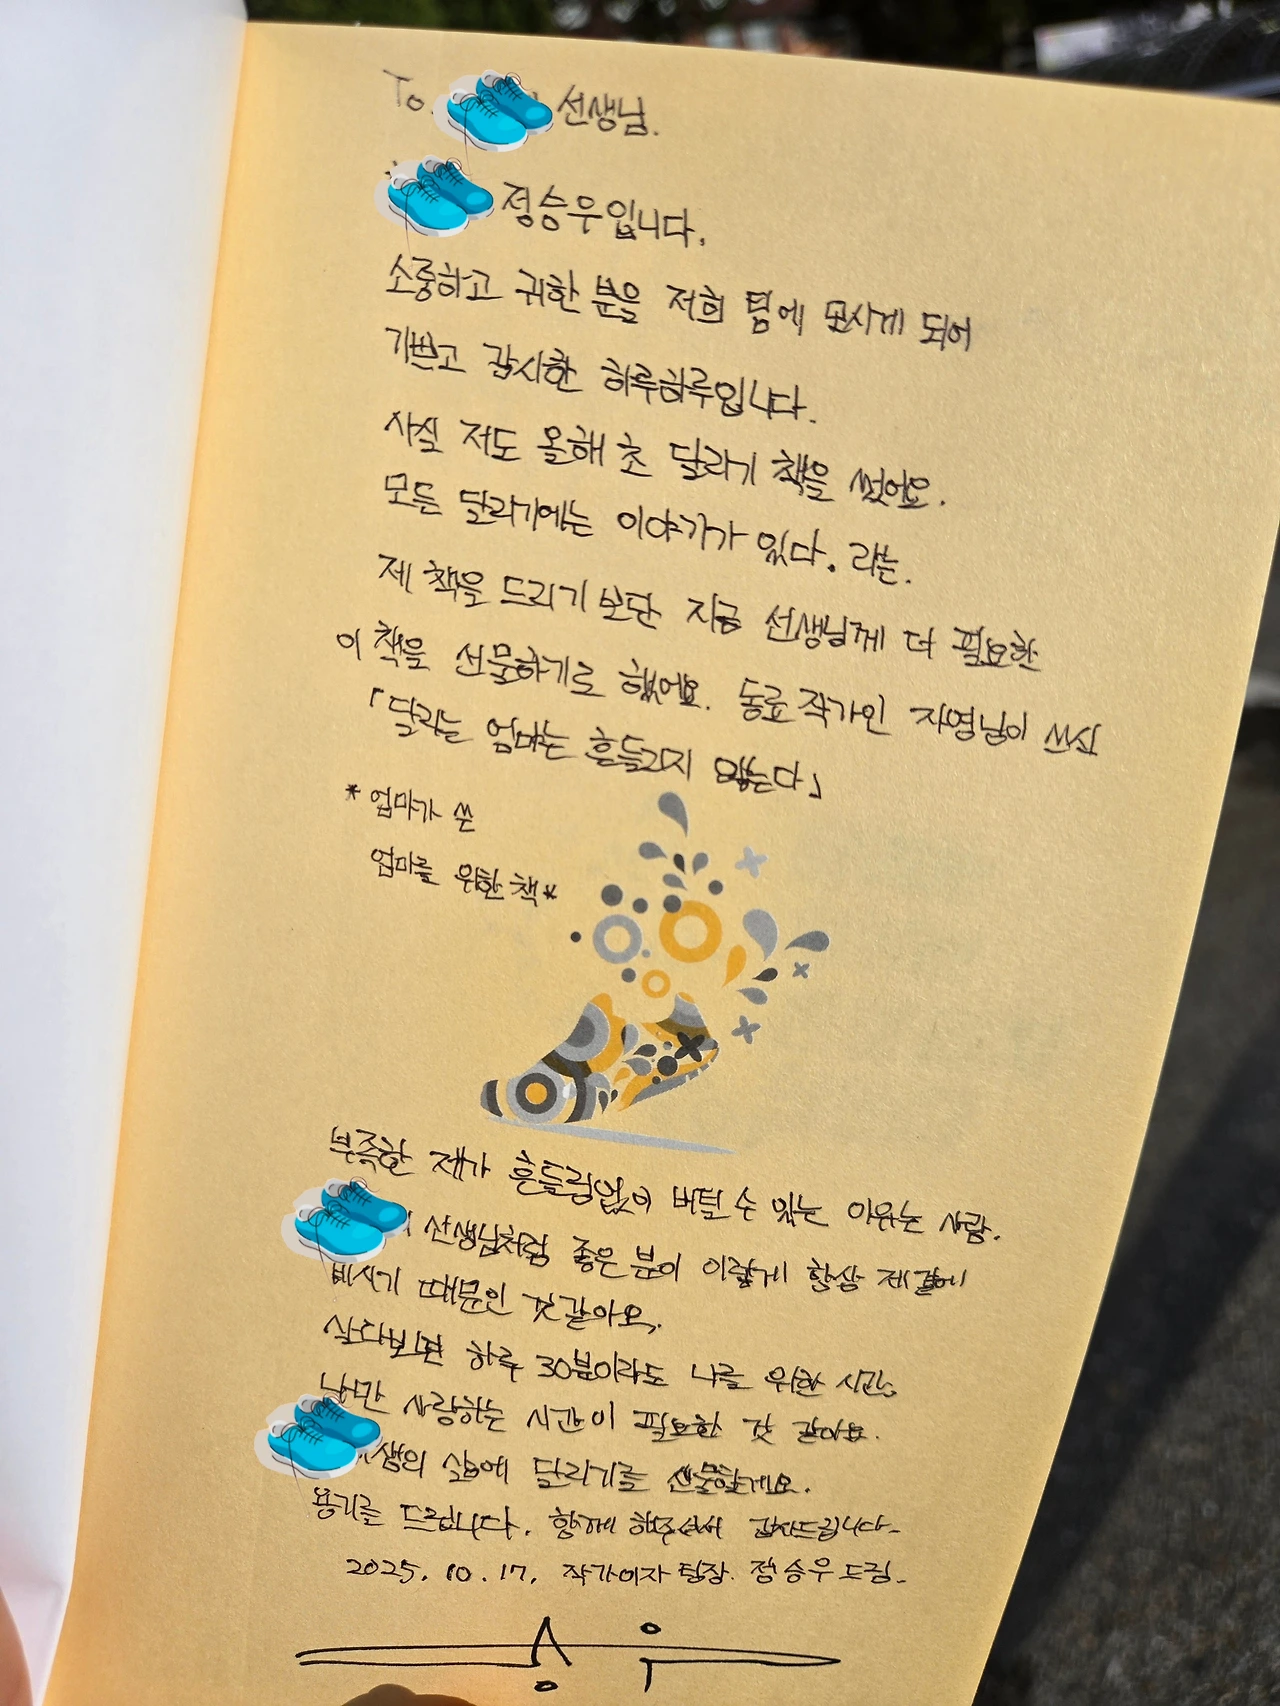 To. 선생님.
정승우입니다.
소중하고 귀한 분을 저희 팀에 모시게 되어
기쁘고 감사한 하루하루입니다.
사실 저도 올해 초 달리기 책을 썼어요.
모든 달리기에는 이야기가 있다. 라는.
제 책을 드리기 보단 지금 선생님께 더 필요한
이 책을 선물하기로 했어요. 동료작가인 자영님이 쓰신
「달리는 엄마는 흔들리지 않는다」
*엄마가 쓴
엄마를 위한 책*
부족한 제가 흔들림없이 버틸 수 있는 이유는 사람.
선생님처럼 좋은 분이 이렇게 항상 제 곁에
계시기 때문인 것 같아요.
살다보면 하루 30분이라도 나를 위한 시간,
나만 사랑하는 시간이 필요한 것 같아요.
쌤의 삶에 달리기를 선물할게요.
용기를 드립니다. 함께 해주셔서 감사드립니다.
2025. 10. 17. 작가이자 팀장. 정승우 드림.